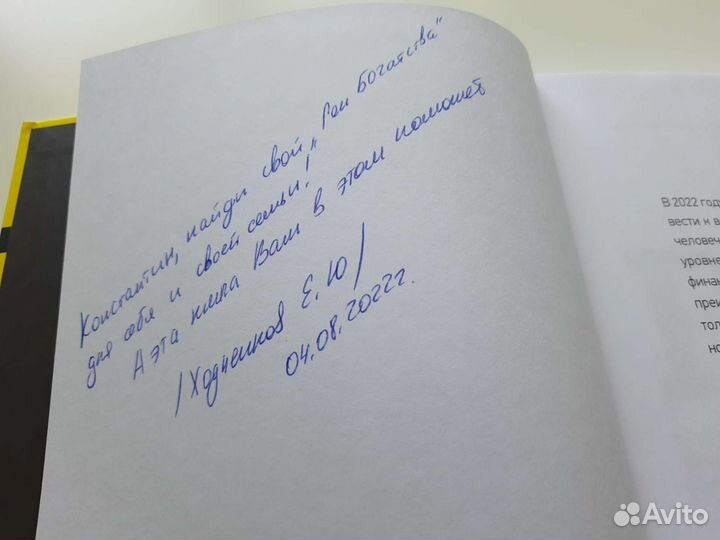 Константин, найди свой „Ген Богатства"
для себя и своей семьи!"
А эта книга Вам в этом поможет
/Ходченков Е.Ю/
04.08.2022г.
В 2022 году
вести к в
человеч
уровне
финан
преи
тол
но
Avito